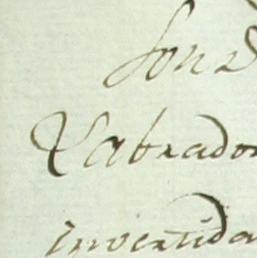 Son d
Labrador
invertida